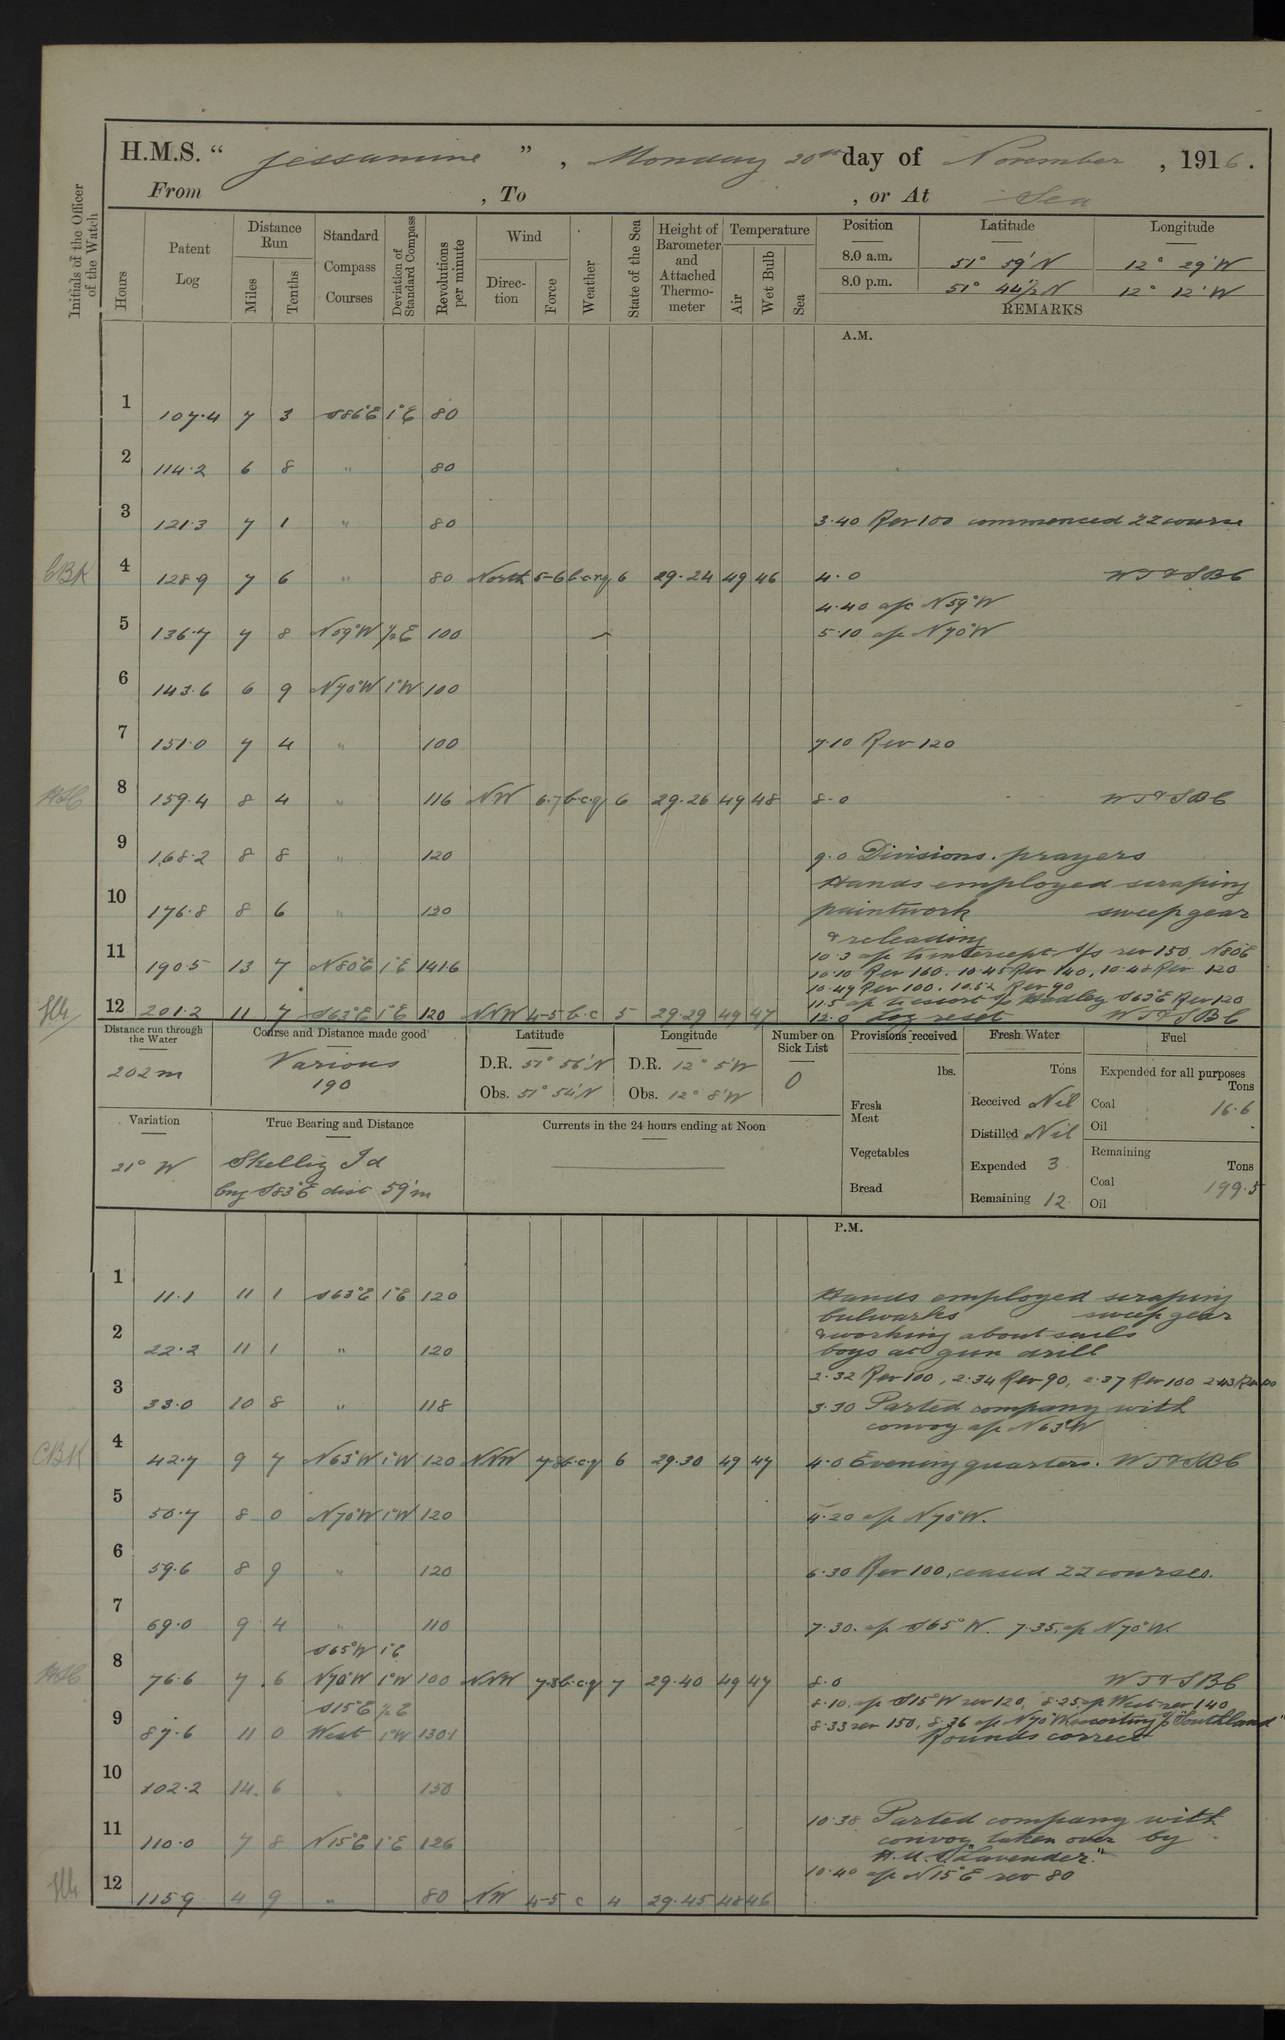 H.M.S. " Jessamine ", Monday 20th day of November, 1916.
From , To , or At Sea
Initials of the Officer of the Watch
Hours
Patent Log
Distance Run
Miles
Tenths
Standard Compass Courses
Deviation of Standard Compass
Revolutions per minute
Wind
Direction
Force
Weather
State of the Sea
Height of Barometer and Attached Thermometer
Temperature
Air
Wet Bulb
Sea
Position Latitude Longitude
8.0 a.m. 51° 59' N 12° 29' W
8.0 p.m. 51° 44½ N 12° 12' W
REMARKS
A.M.
1 107.4 7 3 S86°E 1°E 80
2 114.2 6 8 " 80
3 121.3 7 1 " 80 3.40 Rev 100 commenced ZZ course
CBK 4 128.9 7 6 " 80 North 5-6 b.c.r.q 6 29.24 49 46 4.0 WT&SBC
4.40 a/c N59°W
5 136.7 7 8 N59°W ½E 100 5.10 a/c N70°W
6 143.6 6 9 N70°W 1°W 100
7 151.0 7 4 " 100 7.10 Rev 120
8 159.4 8 4 " 116 NW 6.7 b.c.q 6 29.26 49 48 8.0 WT&SBC
9 168.2 8 8 " 120 9.0 Divisions. prayers
Hands employed scraping
10 176.8 8 6 " 120 paintwork sweep gear
& reloading
10.3 a/c to intercept s/s rev 150. N80°E
11 190.5 13 7 N80°E 1°E 141.6 10.10 Rev 160. 10.45 Rev 140, 10.48 Rev 120
10.49 Rev 100. 10.52 Rev 90
11.5 a/c to escort s/s Hadley S63°E Rev 120
12 201.2 11 7 S63°E 1°E 120 NNW 4-5 b.c 5 29.29 49 47 12.0 Log reset WT&SBC
Distance run through the Water
202 m
Course and Distance made good
Various
190
Latitude
D.R. 51° 56' N
Obs. 51° 54' N
Longitude
D.R. 12° 5' W
Obs. 12° 8' W
Number on Sick List
0
Provisions received
lbs.
Fresh Meat
Vegetables
Bread
Fresh Water
Tons
Received Nil
Distilled Nil
Expended 3
Remaining 12
Fuel
Expended for all purposes
Tons
Coal 16.6
Oil
Remaining
Tons
Coal 199.5
Oil
Variation
21° W
True Bearing and Distance
Skellig Id
brg S83°E dist 59'm
Currents in the 24 hours ending at Noon
P.M.
1 11.1 11 1 S63°E 1°E 120 Hands employed scraping
bulwarks sweep gear
2 22.2 11 1 " 120 & working about sails
boys at gun drill
2.32 Rev 100, 2.34 Rev 90, 2.37 Rev 100 2.43 Rev
3 33.0 10 8 " 118 3.30 Parted company with
convoy a/c N63°W
CBK 4 42.7 9 7 N63°W 1°W 120 NNW 7.8 b.c.q 6 29.30 49 47 4.0 Evening quarters. WT&SBC
5 50.7 8 0 N70°W 1°W 120 4.20 a/c N70°W.
6 59.6 8 9 " 120 6.30 Rev 100, ceased ZZ courses.
7 69.0 9 4 " 110 7.30. a/c S65°W. 7.35. a/c N70°W.
S65°W 1°E
8 76.6 7 6 N70°W 1°W 100 NNW 7.8 b.c.q 7 29.40 49 47 8.0 WT&SBC
S15°E ½E 8.10. a/c S15°W rev 120, 8.25. a/c West rev 140
9 87.6 11 0 West 1°W 130.1 8.33 rev 150, 8.36 a/c N70°W escorting s/s "Southland"
Rounds correct
10 102.2 14 6 " 150
10.38 Parted company with
11 110.0 7 8 N15°E 1°E 126 convoy taken over by
H.M.S. "Lavender"
10.40 a/c N15°E rev 80
12 115.9 4 9 " 80 NW 4-5 c 4 29.45 48 46